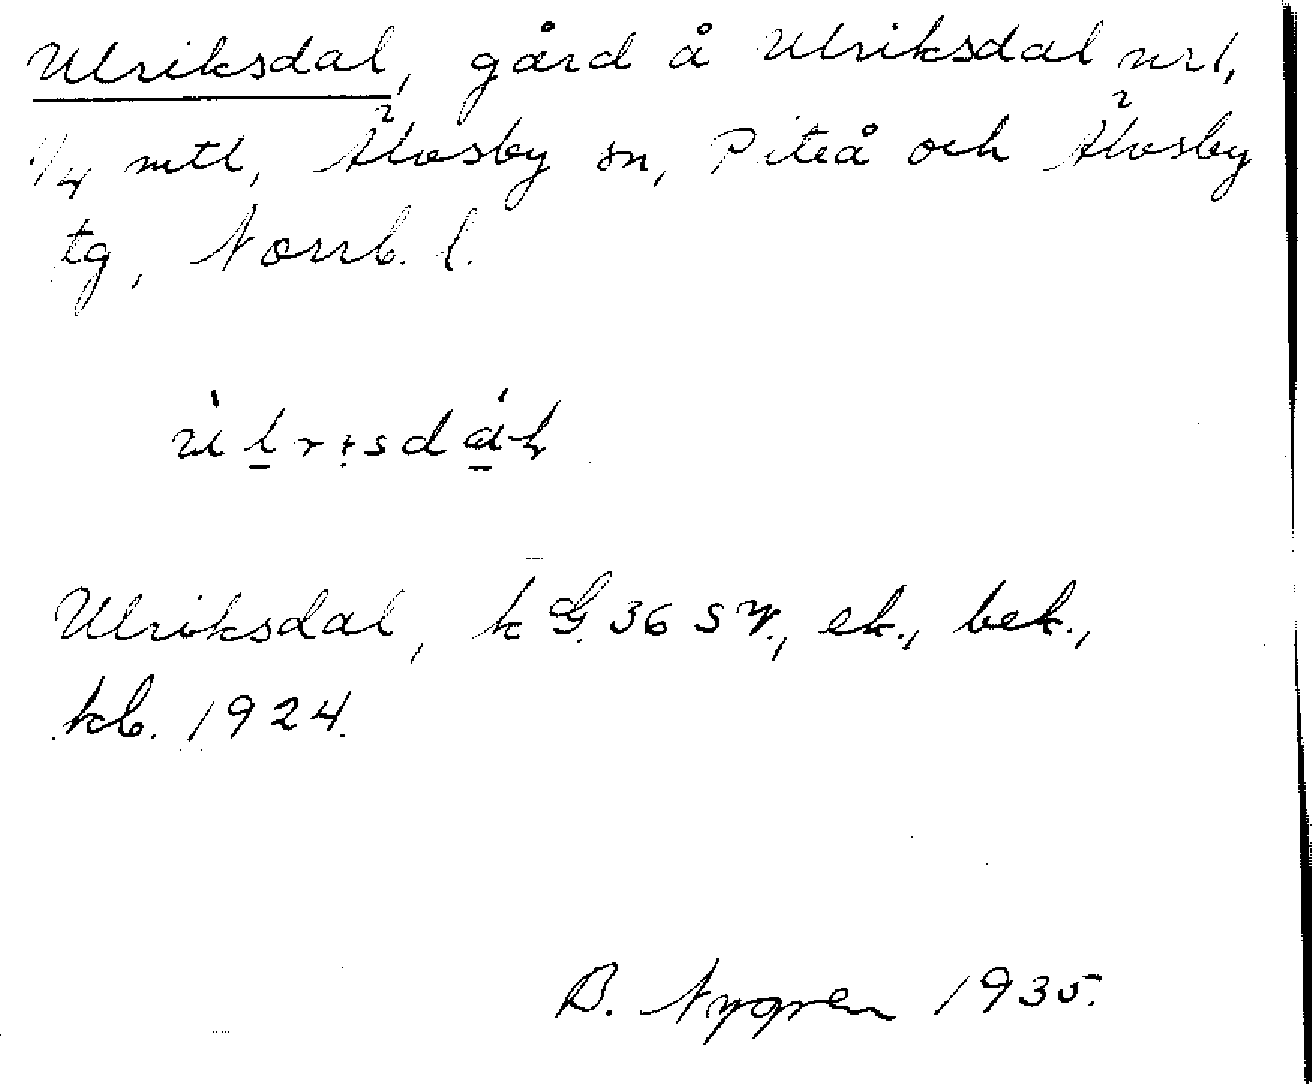 Ulriksdal, gård å Ulriksdal nr 1,
1/4 mtl, Älvsby sn, Piteå och Älvsby
tg, Norrb. l.
Ulriksdal, k G. 36 SV., ek., bek.,
kb. 1924.
B. Nygren 1935.